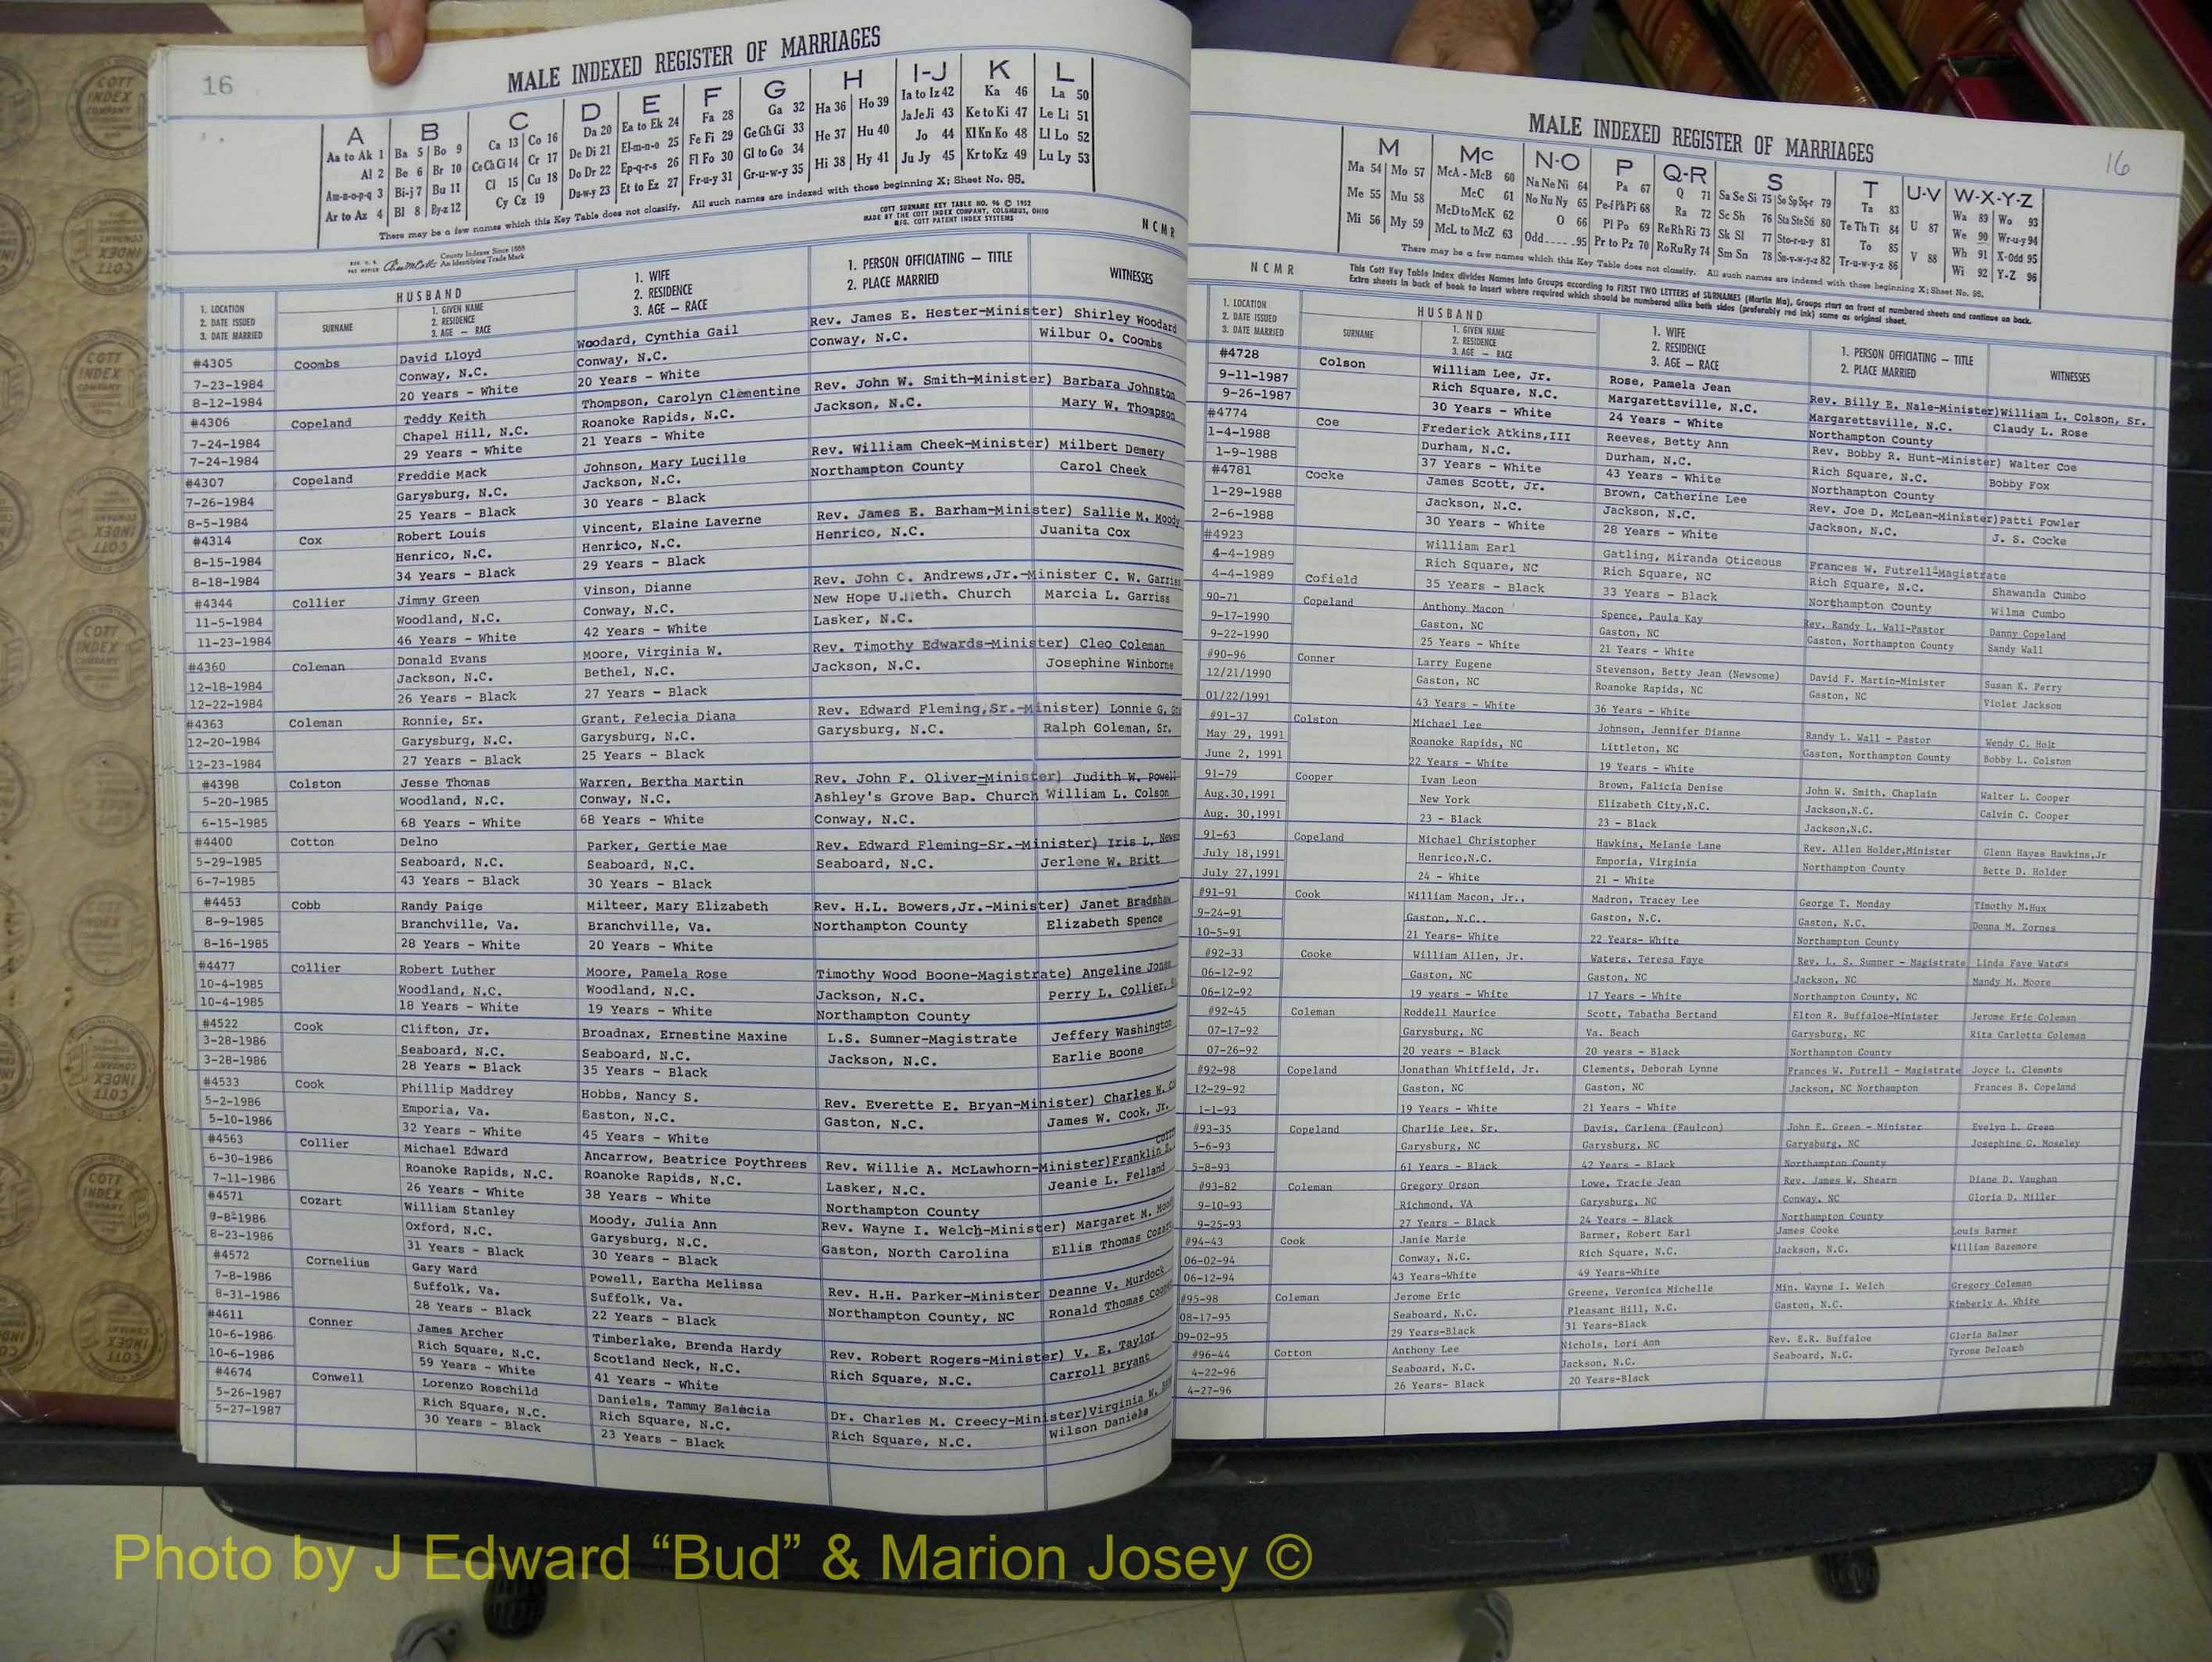 16
MALE INDEXED REGISTER OF MARRIAGES
A B C D E F G H I-J K L
Aa to Ak 1 Ba 5 Bo 9 Ca 13 Co 16 Da 20 Ea to Ek 24 Fa 28 Ga 32 Ha 36 Ho 39 Ia to Iz 42 Ka 46 La 50
Al 2 Be 6 Br 10 Ce Ch Ci 14 Cr 17 De Di 21 El-m-n-o 25 Fe Fi 29 Ge Gh Gi 33 He 37 Hu 40 Ja Je Ji 43 Ke to Ki 47 Le Li 51
Am-n-o-p-q 3 Bi-j 7 Bu 11 Cl 15 Cu 18 Do Dr 22 Ep-q-r-s 26 Fl Fo 30 Gl to Go 34 Hi 38 Hy 41 Jo 44 Kl Kn Ko 48 Ll Lo 52
Ar to Az 4 Bl 8 By-z 12 Cy Cz 19 Du-w-y 23 Et to Ez 27 Fr-u-y 31 Gr-u-w-y 35 Ju Jy 45 Kr to Kz 49 Lu Ly 53
There may be a few names which this Key Table does not classify. All such names are indexed with those beginning X; Sheet No. 95.
COTT SURNAME KEY TABLE NO. 96 © 1952
MADE BY THE COTT INDEX COMPANY, COLUMBUS, OHIO
MFG. COTT PATENT INDEX SYSTEMS
N C M R
County Indexes Since 1888
An Identifying Trade Mark
1. LOCATION
2. DATE ISSUED
3. DATE MARRIED
HUSBAND
SURNAME
1. GIVEN NAME
2. RESIDENCE
3. AGE — RACE
1. WIFE
2. RESIDENCE
3. AGE — RACE
1. PERSON OFFICIATING — TITLE
2. PLACE MARRIED
WITNESSES
#4305 Coombs David Lloyd Woodard, Cynthia Gail Rev. James E. Hester-Minister) Shirley Woodard
7-23-1984 Conway, N.C. Conway, N.C. Conway, N.C. Wilbur O. Coombs
8-12-1984 20 Years - White 20 Years - White
#4306 Copeland Teddy Keith Thompson, Carolyn Clementine Rev. John W. Smith-Minister) Barbara Johnston
7-24-1984 Chapel Hill, N.C. Roanoke Rapids, N.C. Jackson, N.C. Mary W. Thompson
7-24-1984 29 Years - White 21 Years - White
#4307 Copeland Freddie Mack Johnson, Mary Lucille Rev. William Cheek-Minister) Milbert Demery
7-26-1984 Garysburg, N.C. Jackson, N.C. Northampton County Carol Cheek
8-5-1984 25 Years - Black 30 Years - Black
#4314 Cox Robert Louis Vincent, Elaine Laverne Rev. James E. Barham-Minister) Sallie M. Moody
8-15-1984 Henrico, N.C. Henrico, N.C. Henrico, N.C. Juanita Cox
8-18-1984 34 Years - Black 29 Years - Black
#4344 Collier Jimmy Green Vinson, Dianne Rev. John C. Andrews,Jr.-Minister C. W. Garriss
11-5-1984 Woodland, N.C. Conway, N.C. New Hope U.Meth. Church Marcia L. Garriss
11-23-1984 46 Years - White 42 Years - White Lasker, N.C.
#4360 Coleman Donald Evans Moore, Virginia W. Rev. Timothy Edwards-Minister) Cleo Coleman
12-18-1984 Jackson, N.C. Bethel, N.C. Jackson, N.C. Josephine Winborne
12-22-1984 26 Years - Black 27 Years - Black
#4363 Coleman Ronnie, Sr. Grant, Felecia Diana Rev. Edward Fleming,Sr.-Minister) Lonnie G.
12-20-1984 Garysburg, N.C. Garysburg, N.C. Garysburg, N.C. Ralph Coleman, Sr.
12-23-1984 27 Years - Black 25 Years - Black
#4398 Colston Jesse Thomas Warren, Bertha Martin Rev. John F. Oliver-Minister) Judith W. Powell
5-20-1985 Woodland, N.C. Conway, N.C. Ashley's Grove Bap. Church William L. Colson
6-15-1985 68 Years - White 68 Years - White Conway, N.C.
#4400 Cotton Delno Parker, Gertie Mae Rev. Edward Fleming-Sr.-Minister) Iris L.
5-29-1985 Seaboard, N.C. Seaboard, N.C. Seaboard, N.C. Jerlene W. Britt
6-7-1985 43 Years - Black 30 Years - Black
#4453 Cobb Randy Paige Milteer, Mary Elizabeth Rev. H.L. Bowers,Jr.-Minister) Janet Bradshaw
8-9-1985 Branchville, Va. Branchville, Va. Northampton County Elizabeth Spence
8-16-1985 28 Years - White 20 Years - White
#4477 Collier Robert Luther Moore, Pamela Rose Timothy Wood Boone-Magistrate) Angeline Jones
10-4-1985 Woodland, N.C. Woodland, N.C. Jackson, N.C. Perry L. Collier,
10-4-1985 18 Years - White 19 Years - White Northampton County
#4522 Cook Clifton, Jr. Broadnax, Ernestine Maxine L.S. Sumner-Magistrate Jeffery Washington
3-28-1986 Seaboard, N.C. Seaboard, N.C. Jackson, N.C. Earlie Boone
3-28-1986 28 Years - Black 35 Years - Black
#4533 Cook Phillip Maddrey Hobbs, Nancy S. Rev. Everette E. Bryan-Minister) Charles W.
5-2-1986 Emporia, Va. Easton, N.C. Gaston, N.C. James W. Cook, Jr.
5-10-1986 32 Years - White 45 Years - White
#4563 Collier Michael Edward Ancarrow, Beatrice Poythress Rev. Willie A. McLawhorn-Minister)Franklin
6-30-1986 Roanoke Rapids, N.C. Roanoke Rapids, N.C. Lasker, N.C. Jeanie L. Felland
7-11-1986 26 Years - White 38 Years - White Northampton County
#4571 Cozart William Stanley Moody, Julia Ann Rev. Wayne I. Welch-Minister) Margaret M.
8-8-1986 Oxford, N.C. Garysburg, N.C. Gaston, North Carolina Ellis Thomas Cozart
8-23-1986 31 Years - Black 30 Years - Black
#4572 Cornelius Gary Ward Powell, Eartha Melissa Rev. H.H. Parker-Minister Deanne V. Murdock
7-8-1986 Suffolk, Va. Suffolk, Va. Northampton County, NC Ronald Thomas
8-31-1986 28 Years - Black 22 Years - Black
#4611 Conner James Archer Timberlake, Brenda Hardy Rev. Robert Rogers-Minister) V. E. Taylor
10-6-1986 Rich Square, N.C. Scotland Neck, N.C. Rich Square, N.C. Carroll Bryant
10-6-1986 59 Years - White 41 Years - White
#4674 Conwell Lorenzo Roschild Daniels, Tammy Balecia Dr. Charles M. Creecy-Minister)Virginia
5-26-1987 Rich Square, N.C. Rich Square, N.C. Rich Square, N.C. Wilson Daniels
5-27-1987 30 Years - Black 23 Years - Black
MALE INDEXED REGISTER OF MARRIAGES
16
M Mc N-O P Q-R S T U-V W-X-Y-Z
Ma 54 Mo 57 McA - McB 60 Na Ne Ni 64 Pa 67 Q 71 Sa Se Si 75 So Sp Sq-r 79 Ta 83 U 87 Wa 89 Wo 93
Me 55 Mu 58 McC 61 No Nu Ny 65 Pe-f Ph Pi 68 Ra 72 Sc Sh 76 Sta Ste Sti 80 Te Th Ti 84 V 88 We 90 Wr-u-y 94
Mi 56 My 59 McD to McK 62 O 66 Pl Po 69 Re Rh Ri 73 Sk Sl 77 Sto-r-u-y 81 To 85 Wh 91 X-Odd 95
McL to McZ 63 Odd 95 Pr to Pz 70 Ro Ru Ry 74 Sm Sn 78 Su-v-w-y-z 82 Tr-u-w-y-z 86 Wi 92 Y-Z 96
There may be a few names which this Key Table does not classify. All such names are indexed with those beginning X; Sheet No. 95.
N C M R
This Cott Key Table Index divides Names into Groups according to FIRST TWO LETTERS of SURNAMES (Martin Ma), Groups start on front of numbered sheets and continue on back.
Extra sheets in back of book to insert where required which should be numbered alike both sides (preferably red ink) same as original sheet.
1. LOCATION
2. DATE ISSUED
3. DATE MARRIED
HUSBAND
SURNAME
1. GIVEN NAME
2. RESIDENCE
3. AGE — RACE
1. WIFE
2. RESIDENCE
3. AGE — RACE
1. PERSON OFFICIATING — TITLE
2. PLACE MARRIED
WITNESSES
#4728 Colson William Lee, Jr. Rose, Pamela Jean Rev. Billy E. Nale-Minister)William L. Colson, Sr.
9-11-1987 Rich Square, N.C. Margarettsville, N.C. Margarettsville, N.C. Claudy L. Rose
9-26-1987 30 Years - White 24 Years - White Northampton County
#4774 Coe Frederick Atkins,III Reeves, Betty Ann Rev. Bobby R. Hunt-Minister) Walter Coe
1-4-1988 Durham, N.C. Durham, N.C. Rich Square, N.C. Bobby Fox
1-9-1988 37 Years - White 43 Years - White Northampton County
#4781 Cocke James Scott, Jr. Brown, Catherine Lee Rev. Joe D. McLean-Minister)Patti Fowler
1-29-1988 Jackson, N.C. Jackson, N.C. Jackson, N.C. J. S. Cocke
2-6-1988 30 Years - White 28 Years - White
#4923 William Earl Gatling, Miranda Oticeous Frances W. Futrell-Magistrate
4-4-1989 Rich Square, NC Rich Square, NC Rich Square, N.C. Shawanda Cumbo
4-4-1989 Cofield 35 Years - Black 33 Years - Black Northampton County Wilma Cumbo
90-71 Copeland Anthony Macon Spence, Paula Kay Rev. Randy L. Wall-Pastor Danny Copeland
9-17-1990 Gaston, NC Gaston, NC Gaston, Northampton County Sandy Wall
9-22-1990 25 Years - White 21 Years - White
#90-96 Conner Larry Eugene Stevenson, Betty Jean (Newsome) David F. Martin-Minister Susan K. Perry
12/21/1990 Gaston, NC Roanoke Rapids, NC Gaston, NC Violet Jackson
01/22/1991 43 Years - White 36 Years - White
#91-37 Colston Michael Lee Johnson, Jennifer Dianne Randy L. Wall - Pastor Wendy C. Holt
May 29, 1991 Roanoke Rapids, NC Littleton, NC Gaston, Northampton County Bobby L. Colston
June 2, 1991 22 Years - White 19 Years - White
91-79 Cooper Ivan Leon Brown, Falicia Denise John W. Smith, Chaplain Walter L. Cooper
Aug.30,1991 New York Elizabeth City,N.C. Jackson,N.C. Calvin C. Cooper
Aug. 30,1991 23 - Black 23 - Black Jackson,N.C.
91-63 Copeland Michael Christopher Hawkins, Melanie Lane Rev. Allen Holder,Minister Glenn Hayes Hawkins,Jr
July 18,1991 Henrico,N.C. Emporia, Virginia Northampton County Bette D. Holder
July 27,1991 24 - White 21 - White
#91-91 Cook William Macon, Jr., Madron, Tracey Lee George T. Monday Timothy M.Hux
9-24-91 Gaston, N.C.. Gaston, N.C. Gaston, N.C. Donna M. Zornes
10-5-91 21 Years- White 22 Years- White Northampton County
#92-33 Cooke William Allen, Jr. Waters, Teresa Faye Rev. L. S. Sumner - Magistrate Linda Faye Waters
06-12-92 Gaston, NC Gaston, NC Jackson, NC Mandy M. Moore
06-12-92 19 years - White 17 Years - White Northampton County, NC
#92-45 Coleman Roddell Maurice Scott, Tabatha Bertand Elton R. Buffaloe-Minister Jerome Eric Coleman
07-17-92 Garysburg, NC Va. Beach Garysburg, NC Rita Carlotta Coleman
07-26-92 20 years - Black 20 years - Black Northampton County
#92-98 Copeland Jonathan Whitfield, Jr. Clements, Deborah Lynne Frances W. Futrell - Magistrate Joyce L. Clements
12-29-92 Gaston, NC Gaston, NC Jackson, NC Northampton Frances B. Copeland
1-1-93 19 Years - White 21 Years - White
#93-35 Copeland Charlie Lee, Sr. Davis, Carlena (Faulcon) John E. Green - Minister Evelyn L. Green
5-6-93 Garysburg, NC Garysburg, NC Garysburg, NC Josephine G. Moseley
5-8-93 61 Years - Black 42 Years - Black Northampton County
#93-82 Coleman Gregory Orson Lowe, Tracie Jean Rev. James W. Shearn Diane D. Vaughan
9-10-93 Richmond, VA Garysburg, NC Conway, NC Gloria D. Miller
9-25-93 27 Years - Black 24 Years - Black Northampton County
#94-43 Cook Janie Marie Barmer, Robert Earl James Cooke Louis Barmer
06-02-94 Conway, N.C. Rich Square, N.C. Jackson, N.C. William Bazemore
06-12-94 43 Years-White 49 Years-White
#95-98 Coleman Jerome Eric Greene, Veronica Michelle Min. Wayne I. Welch Gregory Coleman
08-17-95 Seaboard, N.C. Pleasant Hill, N.C. Gaston, N.C. Kimberly A. White
09-02-95 29 Years-Black 31 Years-Black
#96-44 Cotton Anthony Lee Nichols, Lori Ann Rev. E.R. Buffaloe Gloria Balmer
4-22-96 Seaboard, N.C. Jackson, N.C. Seaboard, N.C. Tyrone Deloatch
4-27-96 26 Years- Black 20 Years-Black
Photo by J Edward “Bud” & Marion Josey ©